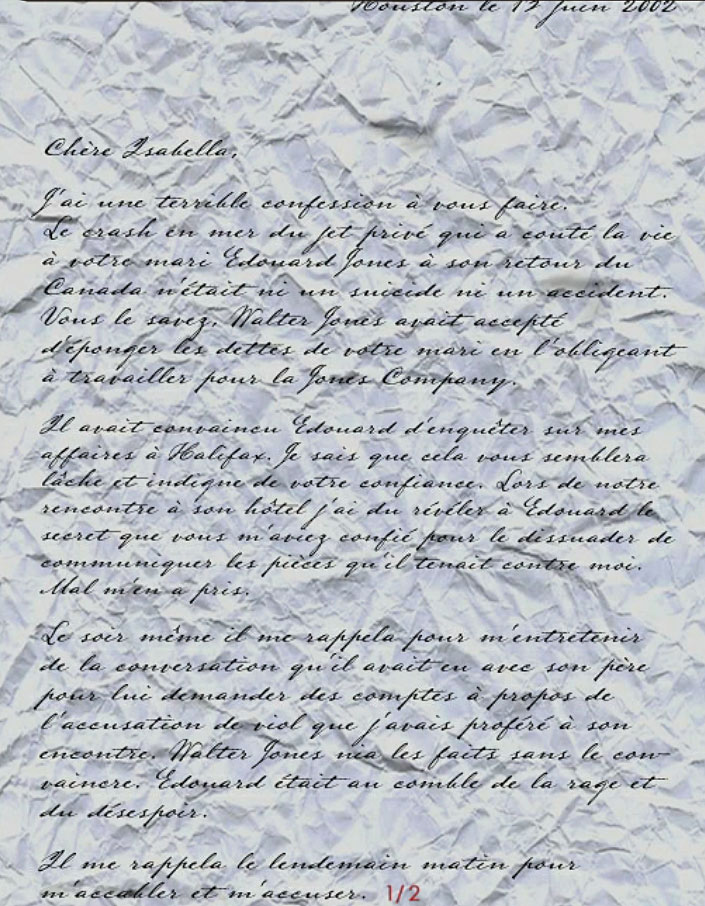 Houston le 13 Juin 2002
Chère Isabella,
J'ai une terrible confession à vous faire.
Le crash en mer du jet privé qui a couté la vie
à votre mari Edouard Jones à son retour du
Canada n'était ni un suicide ni un accident.
Vous le savez, Walter Jones avait accepté
d'éponger les dettes de votre mari en l'obligeant
à travailler pour la Jones Company.
Il avait convaincu Edouard d'enquêter sur mes
affaires à Halifax. Je sais que cela vous semblera
lâche et indigne de votre confiance. Lors de notre
rencontre à son hôtel j'ai du révéler à Edouard le
secret que vous m'aviez confié pour le dissuader de
communiquer les pièces qu'il tenait contre moi.
Mal m'en a pris.
Le soir même il me rappela pour m'entretenir
de la conversation qu'il avait eu avec son père
pour lui demander des comptes à propos de
l'accusation de viol que j'avais proféré à son
encontre. Walter Jones nia les faits sans le con-
vaincre. Edouard était au comble de la rage et
du désespoir.
Il me rappela le lendemain matin pour
m'accabler et m'accuser. 1/2